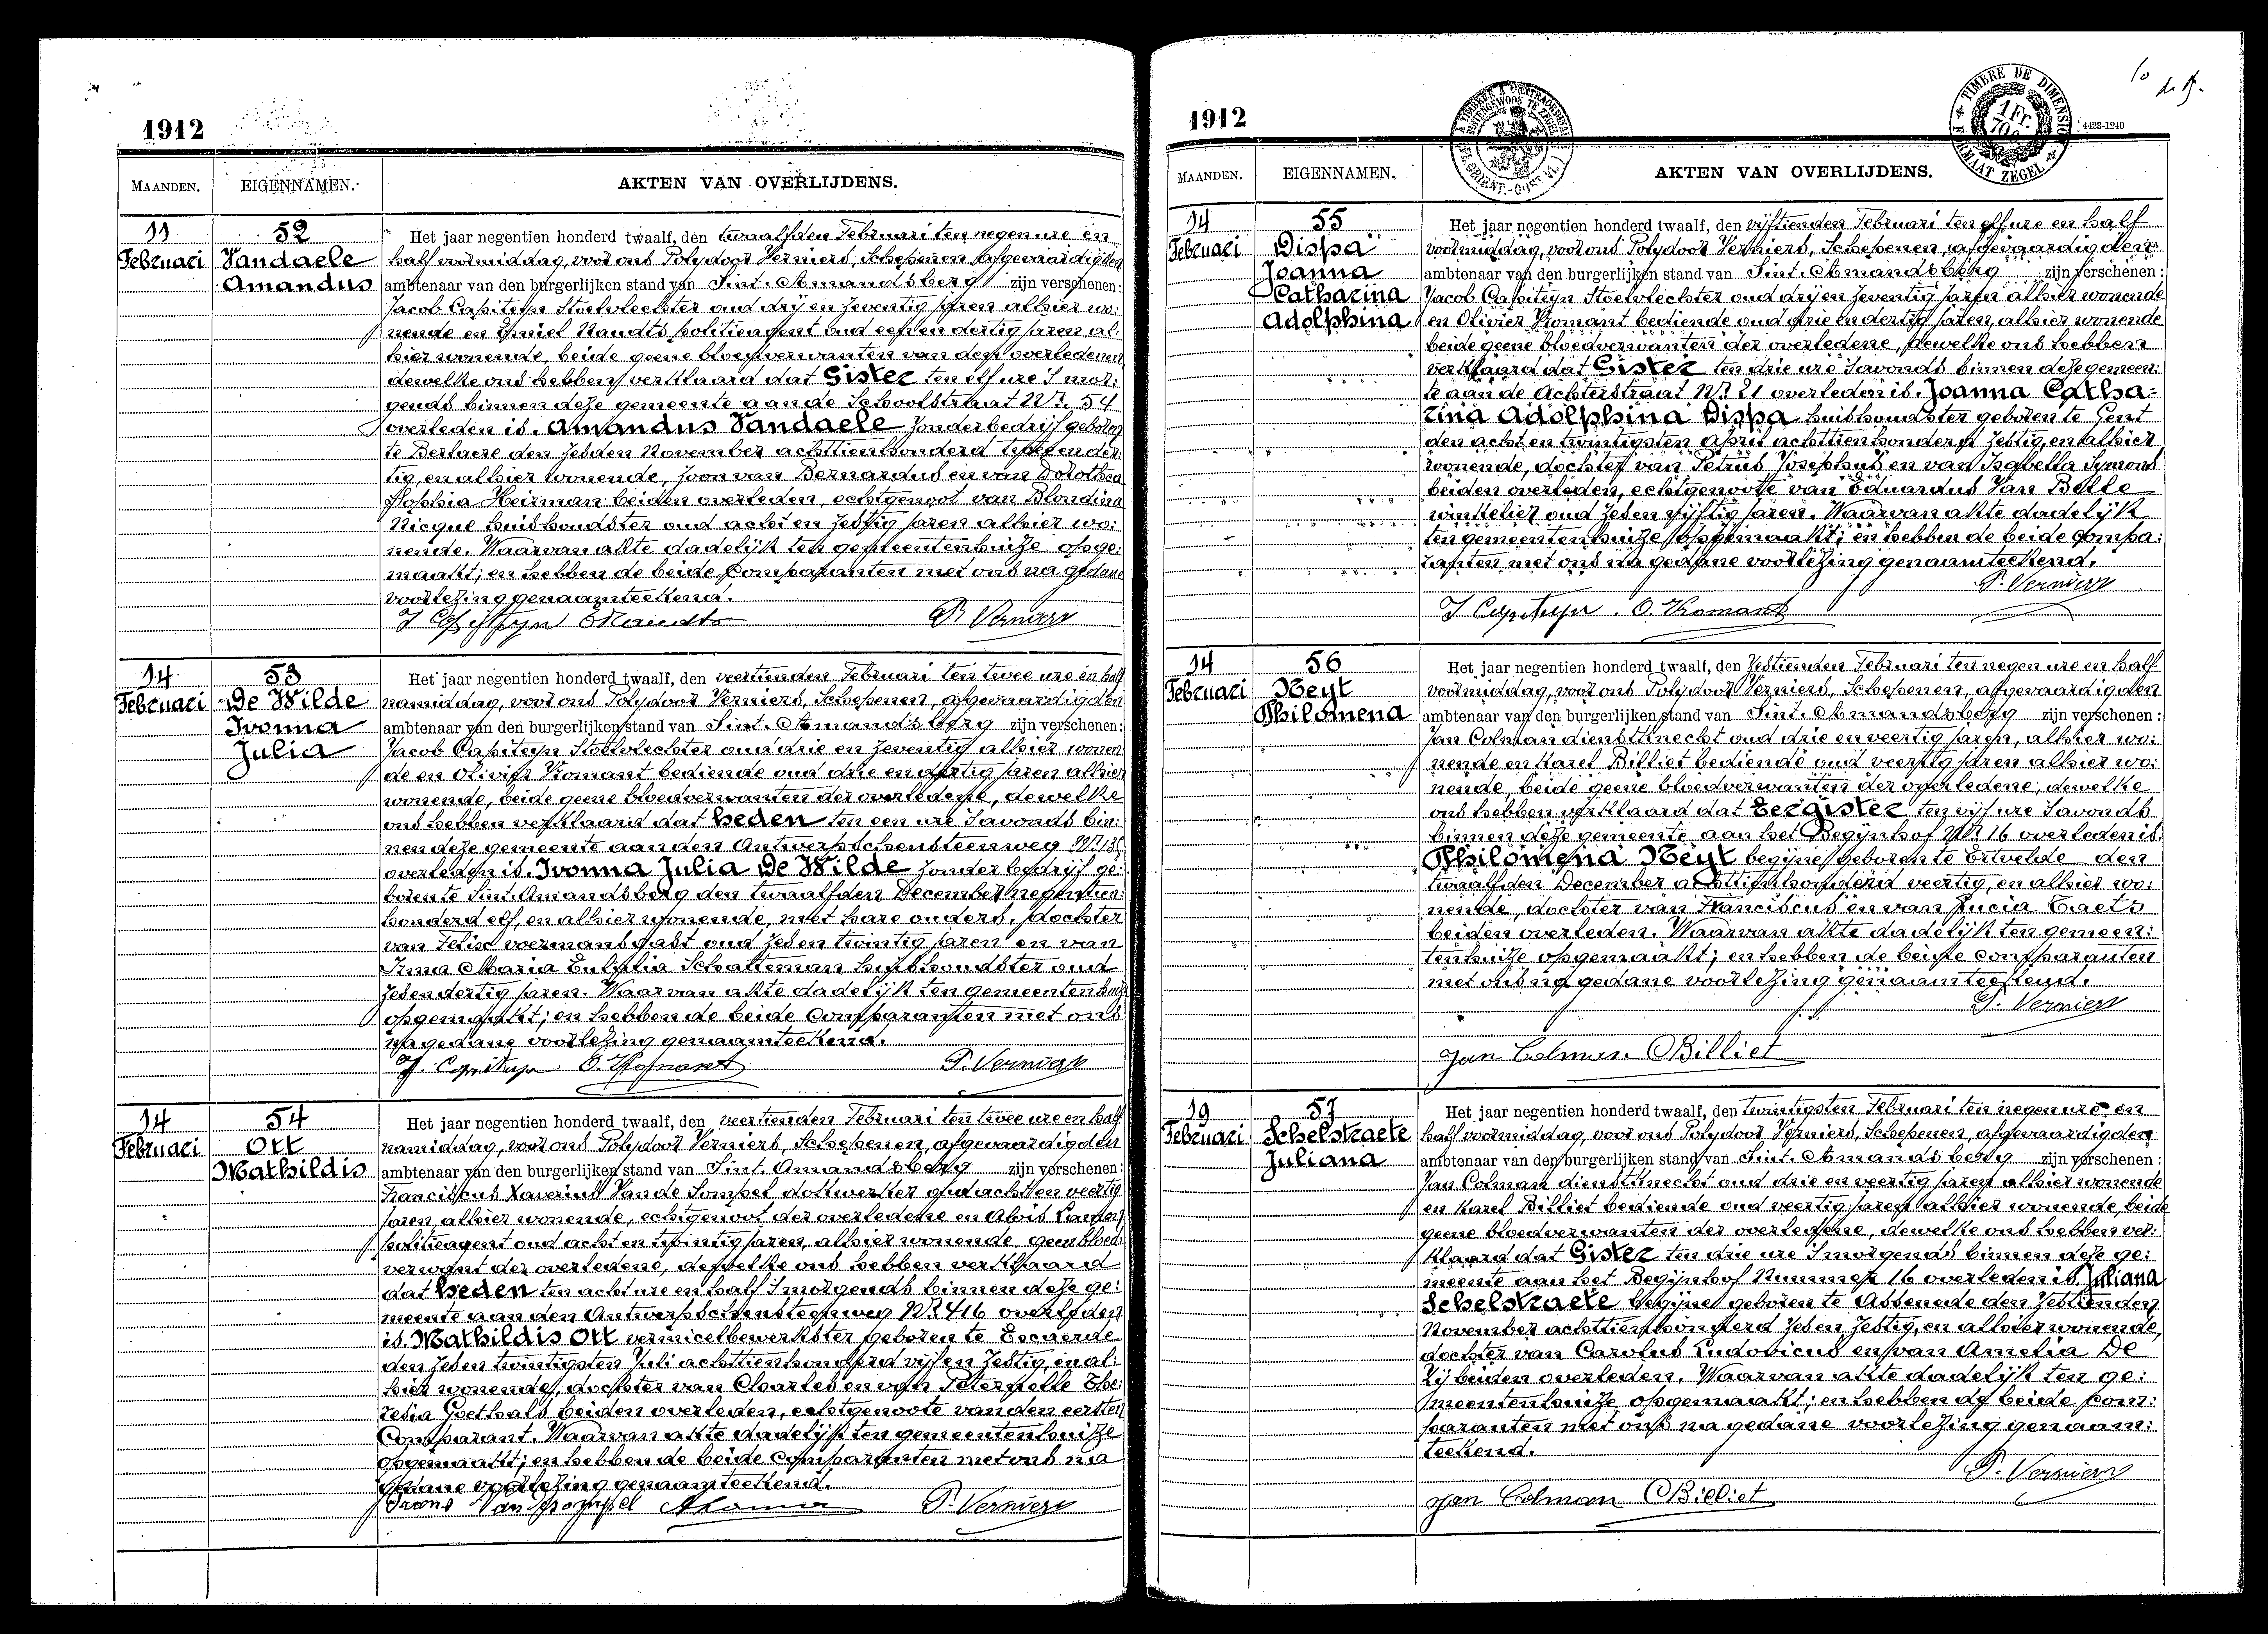 1912
MAANDEN.
EIGENNAMEN.
AKTEN VAN OVERLIJDENS.
11
Februari
52
Vandaele
Amandus
Het jaar negentien honderd twaalf, den twaalfden Februari ten negen ure en
half voormiddag, voor ons Polydoor Verniers, Schepenen afgevaardigden
ambtenaar van den burgerlijken stand van Sint. Amandsberg zijn verschenen:
Jacob Capiteyn Stoelvlechter oud drij en zeventig jaren alhier wo:
nende en Emiel Naudts politieagent oud een en dertig jaren al:
hier wonende, beide geene bloedverwanten van den overledenen
dewelke ons hebben verklaard dat Gister ten elf ure 's mor:
gends binnen deze gemeente aan de Schoolstraat Nr. 54
overleden is. Amandus Vandaele zonder bedrijf geboren
te Berlaere den zesden November achttienhonderd en der:
tig, en alhier wonende, zoon van Bernardus en van Dorothea
Sophia Heirman beiden overleden, echtgenoot van Blondina
Nicque huishoudster oud acht en zestig jaren alhier wo:
nende. Waarvan akte dadelijk ten gemeentenhuize opge:
maakt; en hebben de beide Comparanten met ons na gedane
voorlezing genaamteekend.
J Capiteyn ENaudts P. Verniers
14
Februari
53
De Wilde
Ivonna
Julia
Het jaar negentien honderd twaalf, den veertienden Februari ten twee ure en half
namiddag, voor ons Polydoor Verniers, Schepenen, afgevaardigden
ambtenaar van den burgerlijken stand van Sint. Amandsberg zijn verschenen:
Jacob Capiteyn Stoelvlechter oud drie en zeventig alhier wonen
de en Olivier Komant bediende oud drie en dertig jaren alhier
wonende, beide geene bloedverwanten der overledene, dewelke
ons hebben verklaard dat heden ten een ure 's avonds bin:
nen deze gemeente aan den Antwerpschensteenweg Nr.
overleden is. Ivonna Julia De Wilde zonder bedrijf ge:
boren te Sint. Amandsberg den twaalfden December negentien:
honderd elf, en alhier wonende, met hare ouders, dochter
van Felix voermansgast oud zes en twintig jaren en van
Irma Maria Eulalia Schatteman huishoudster oud
zes en dertig jaren. Waarvan akte dadelijk ten gemeentenhuize
opgemaakt; en hebben de beide Comparanten met ons
na gedane voorlezing genaamteekend.
J. Capiteyn O. Komant P. Verniers
14
Februari
54
Ott
Mathildis
Het jaar negentien honderd twaalf, den veertienden Februari ten twee ure en half
namiddag, voor ons Polydoor Verniers, Schepenen, afgevaardigden
ambtenaar van den burgerlijken stand van Sint. Amandsberg zijn verschenen:
Franciscus Xaverius Vande Sompel dokwerker oud acht en veertig
jaren, alhier wonende, echtgenoot der overledene en Alois
politieagent oud acht en twintig jaren, alhier wonende geen bloed:
verwant der overledene, dewelke ons hebben verklaard
dat heden ten acht ure en half 's morgends binnen deze ge:
meente aan den Antwerpschensteenweg Nr. 416 overleden
is. Mathildis Ott vermicelbewerkster geboren te Everde
den zes en twintigsten Juli achttienhonderd vijf en zestig, en al:
hier wonende, dochter van Charles en van Peternelle The:
resia Goethals beiden overleden, echtgenoote van den eersten
Comparant. Waarvan akte dadelijk ten gemeentenhuize
opgemaakt; en hebben de beide Comparanten met ons na
gedane voorlezing genaamteekend.
Frans Van Sompel P. Verniers
1912
4423-1240
TIMBRE DE DIMENSION
FORMAAT ZEGEL
MAANDEN.
EIGENNAMEN.
AKTEN VAN OVERLIJDENS.
14
Februari
55
Dispa
Joanna
Catharina
Adolphina
Het jaar negentien honderd twaalf, den vijftienden Februari ten elf ure en half
voormiddag, voor ons Polydoor Verniers, Schepenen, afgevaardigden
ambtenaar van den burgerlijken stand van Sint. Amandsberg zijn verschenen:
Jacob Capiteyn Stoelvlechter oud drij en zeventig jaren alhier wonende
en Olivier Komant bediende oud drie en dertig jaren, alhier wonende
beide geene bloedverwanten der overledene, dewelke ons hebben
verklaard dat Gister ten drie ure 's avonds binnen deze gemeen:
te aan de Achterstraat Nr. 21 overleden is. Joanna Catha=
rina Adolphina Dispa huishoudster geboren te Gent
den acht en twintigsten April achttienhonderd zestig, en alhier
wonende, dochter van Petrus Josephus en van Isabella Symons
beiden overleden, echtgenoote van Eduardus Van Belle
winkelier oud zes en vijftig jaren. Waarvan akte dadelijk
ten gemeentenhuize opgemaakt; en hebben de beide Compa:
ranten met ons na gedane voorlezing genaamteekend.
P. Verniers
J Capiteyn. O. Komant
14
Februari
56
Neyt
Philomena
Het jaar negentien honderd twaalf, den zestienden Februari ten negen ure en half
voormiddag, voor ons Polydoor Verniers, Schepenen, afgevaardigden
ambtenaar van den burgerlijken stand van Sint. Amandsberg zijn verschenen:
Jan Colman dienstknecht oud drie en veertig jaren, alhier wo:
nende en Karel Billiet bediende oud veertig jaren alhier wo:
nende, beide geene bloedverwanten der overledene, dewelke
ons hebben verklaard dat Eergister ten vijf ure 's avonds
binnen deze gemeente aan het Begijnhof Nr. 16 overleden is.
Philomena Neyt begijne geboren te Ertvelde den
twaalfden December achttienhonderd veertig, en alhier wo:
nende, dochter van Franciscus en van Lucia Baets
beiden overleden. Waarvan akte dadelijk ten gemeen:
tenhuize opgemaakt; en hebben de beide Comparanten
met ons na gedane voorlezing genaamteekend.
P. Verniers
Jan Colman CBilliet
19
Februari
57
Schelstraete
Juliana
Het jaar negentien honderd twaalf, den twintigsten Februari ten negen ure en
half voormiddag, voor ons Polydoor Verniers, Schepenen, afgevaardigden
ambtenaar van den burgerlijken stand van Sint. Amandsberg zijn verschenen:
Jan Colman dienstknecht oud drie en veertig jaren alhier wonende
en Karel Billiet bediende oud veertig jaren alhier wonende, beide
geene bloedverwanten der overledene, dewelke ons hebben ver:
klaard dat Gister ten drie ure 's morgends binnen deze ge:
meente aan het Begijnhof Nummer 16 overleden is. Juliana
Schelstraete begijne geboren te Assenede den zestienden
November achttienhonderd zes en zestig, en alhier wonende,
dochter van Carolus Ludovicus en van Amelia De
Rij beiden overleden. Waarvan akte dadelijk ten ge:
meentenhuize opgemaakt; en hebben de beide Com:
paranten met ons na gedane voorlezing genaam:
teekend.
P. Verniers
Jan Colman CBilliet